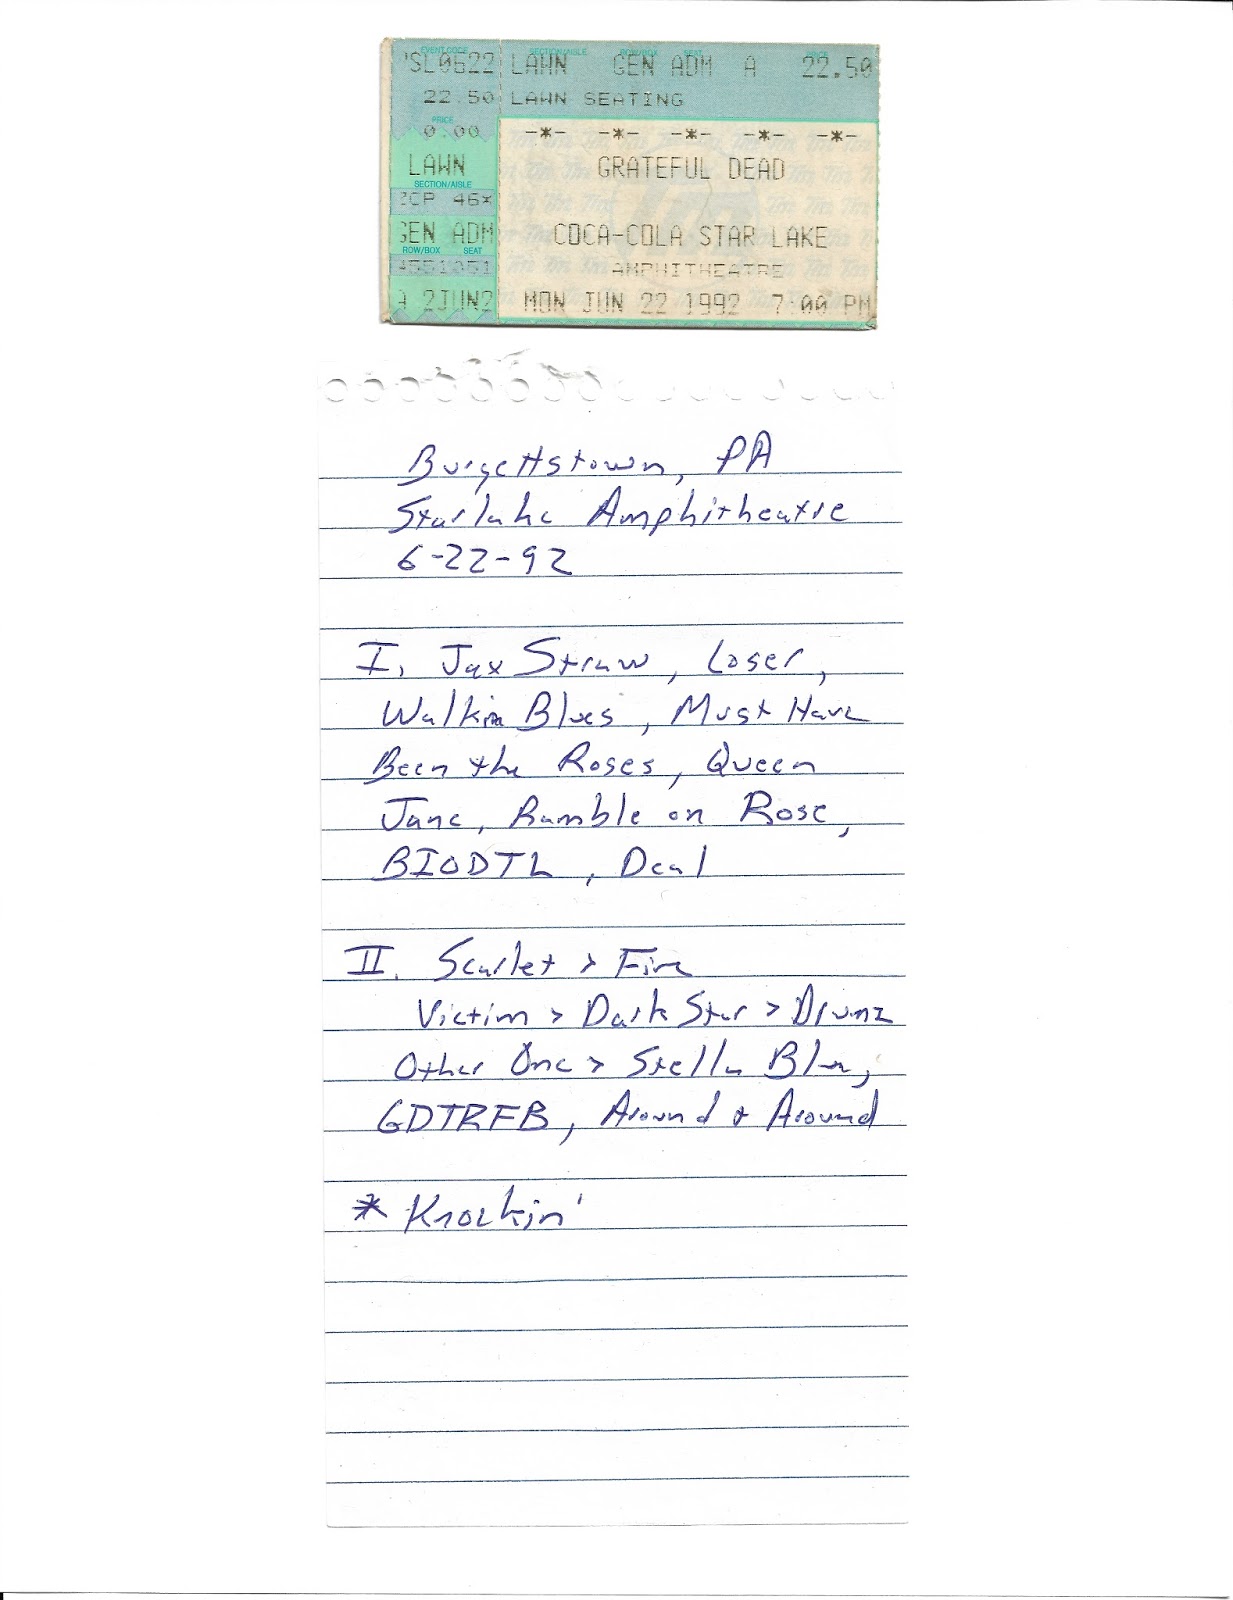 EVENT CODE SECTION/AISLE ROW/BOX SEAT PRICE
'SL0622 LAWN GEN ADM A 22.50
22.50 LAWN SEATING
PRICE
0.00 -*- -*- -*- -*- -*-
LAWN GRATEFUL DEAD
SECTION/AISLE
46*
GEN ADM COCA-COLA STAR LAKE
ROW/BOX SEAT
AMPHITHEATRE
A 2JUN2 MON JUN 22 1992 7:00 PM
Burgettstown, PA
Starlake Amphitheatre
6-22-92
I. Jax Straw, Loser,
Walkin Blues, Must Have
Been the Roses, Queen
Jane, Ramble on Rose,
BIODTL, Deal
II. Scarlet > Fire
Victim > Dark Star > Drumz
Other One > Stella Blue,
GDTRFB, Around + Around
* Knockin'